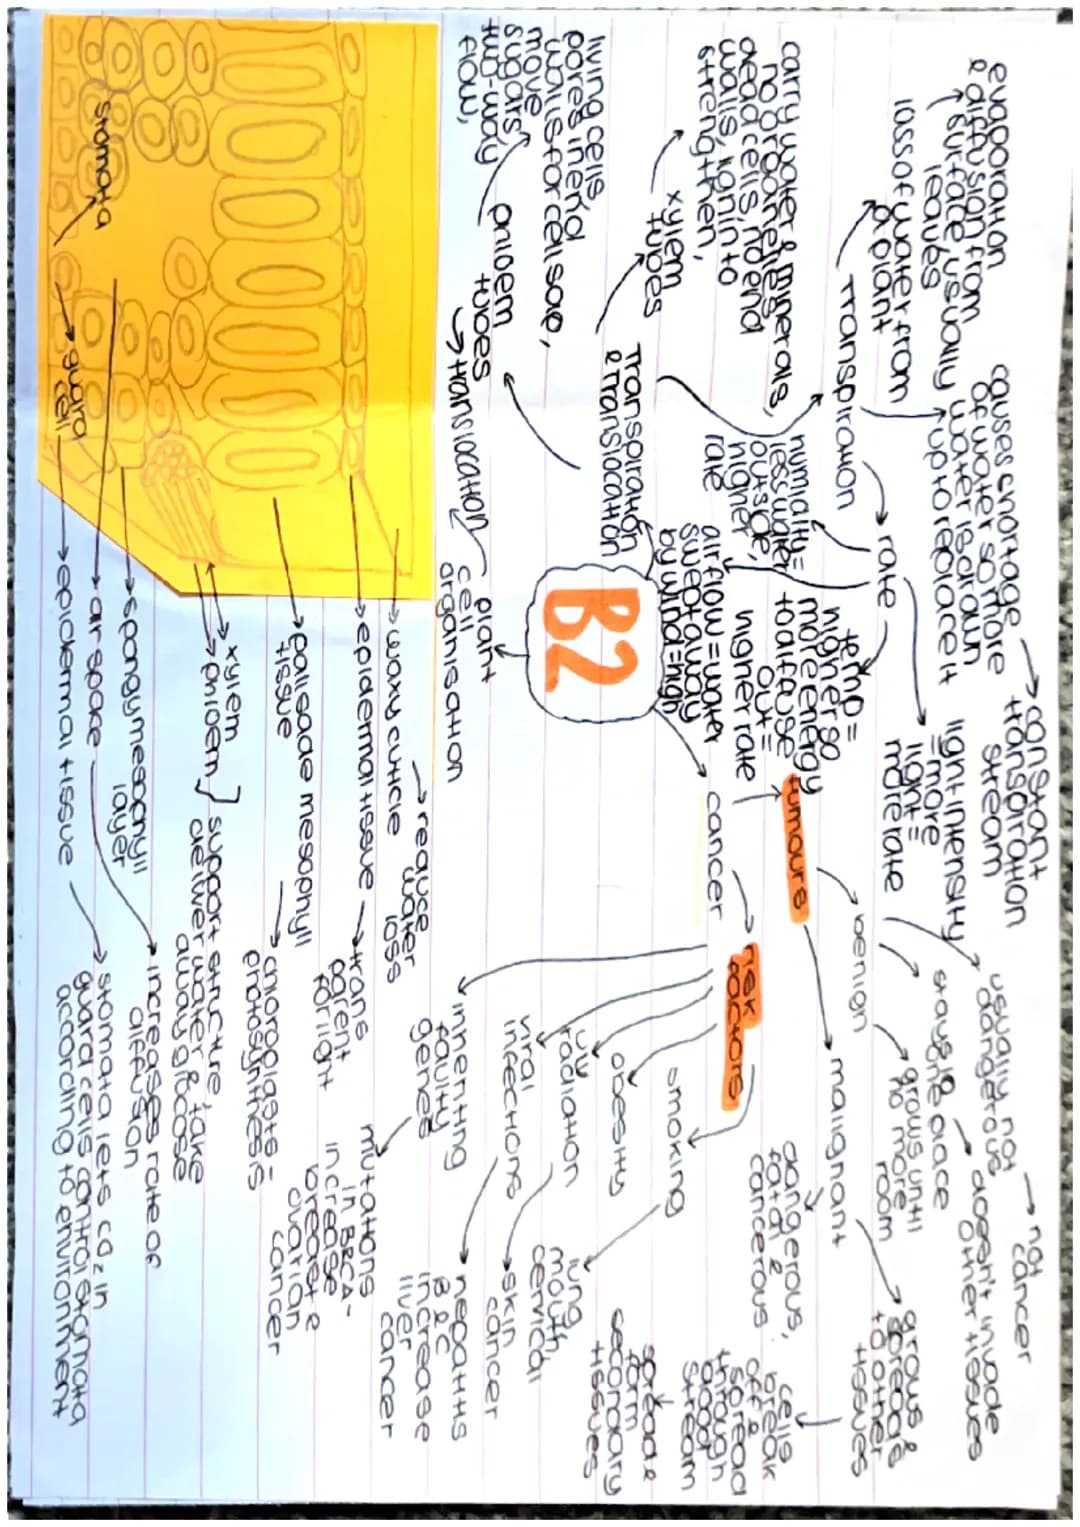 B2
Transpiration
& Translocation
Transpiration
loss of water from
a plant
evaporation
& diffusion from
surface, usually
leaves
causes shortage
of water so more
water is drawn
up to replace it
constant
transpiration
stream
rate
light intensity
= more
light =
more rate
temp =
higher so
more energy
to diffuse
out =
higher rate
humidity =
less water
outside,
higher
rate
air flow = water
swept away
by wind = high
xylem
tubes
carry water & minerals,
no organelles,
dead cells, no end
walls, lignin to
strengthen,
phloem
tubes
living cells,
pores in end
walls for cell sap,
move
sugars,
two-way
flow,
translocation
plant
cell
organisation
waxy cuticle
reduce
water
loss
epidermal tissue
trans
parent
for light
palisade mesophyll
tissue
chloroplasts =
photosynthesis
xylem
phloem
support structure,
deliver water & take
away glucose
spongy mesophyll
layer
air space
increases rate of
diffusion
epidermal tissue
stomata lets co2 in
guard cells control stomata
according to environment
stomata
guard
cell
cancer
tumours
benign
usually not
dangerous
not
cancer
stays in
one place
doesn't invade
other tissues
grows until
no more
room
malignant
dangerous,
fatal &
cancerous
grows &
spreads
to other
tissues
cells
break
off &
spread
through
blood
stream
spread &
form
secondary
tissues
risk
factors
smoking
lung
mouth,
cervical
obesity
uv
radiation
skin
cancer
viral
infections
hepatitis
B & C
increase
liver
cancer
inheriting
faulty
genes
mutations
in BRCA -
increase
breast &
ovarian
cancer